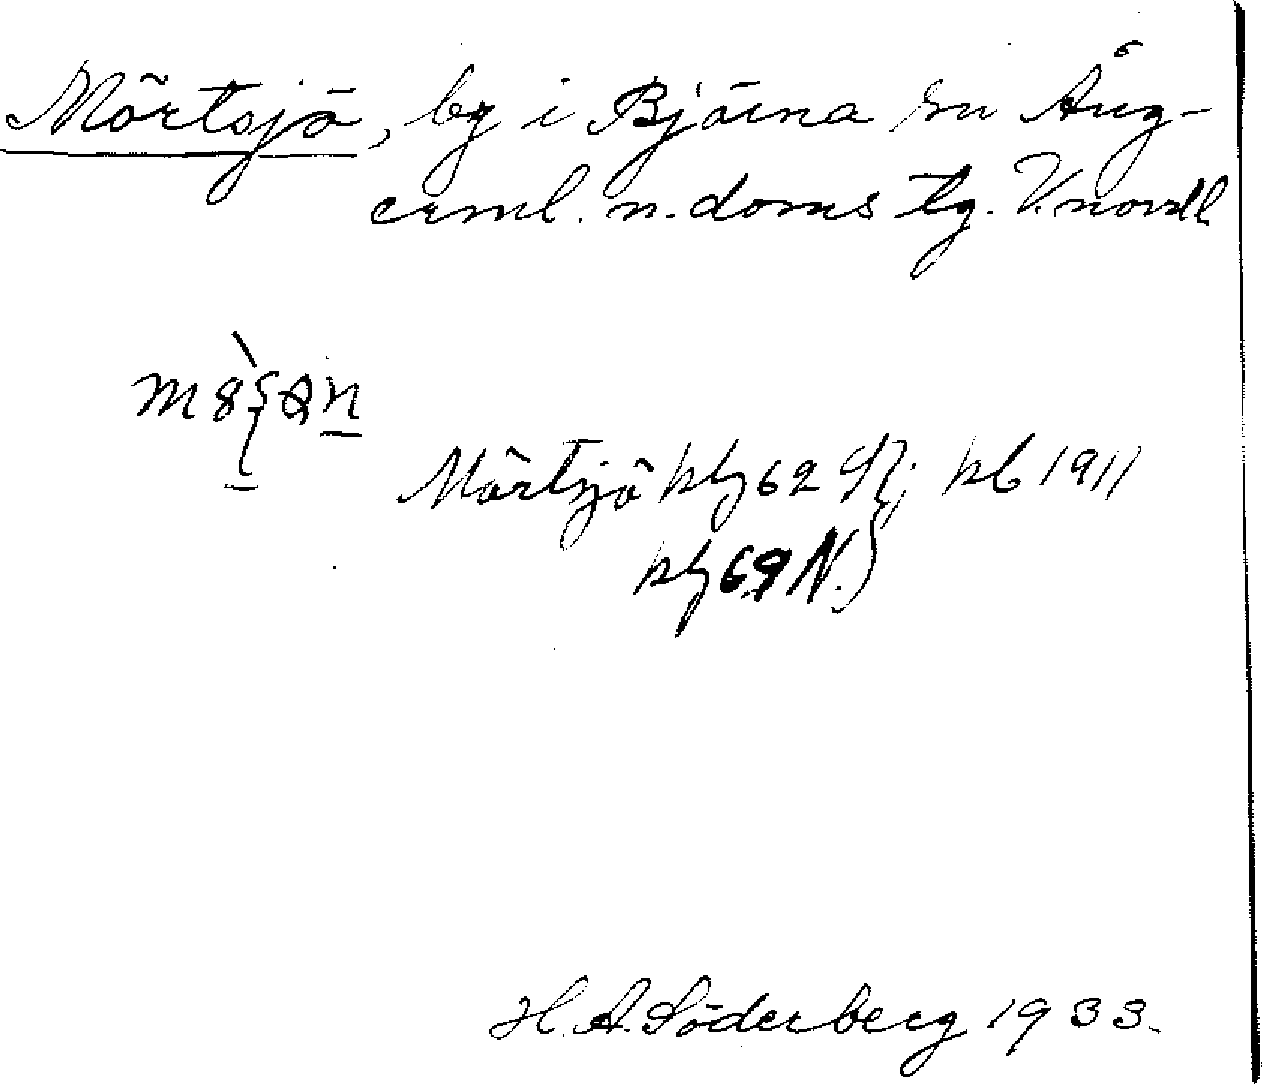 Mörtsjö, by i Björna sn Ång-
erml. n. doms tg. V.norrl
Mörtsjö kbl 62 kb 1911
kbl 69 N.
H. A. Söderberg 1933.